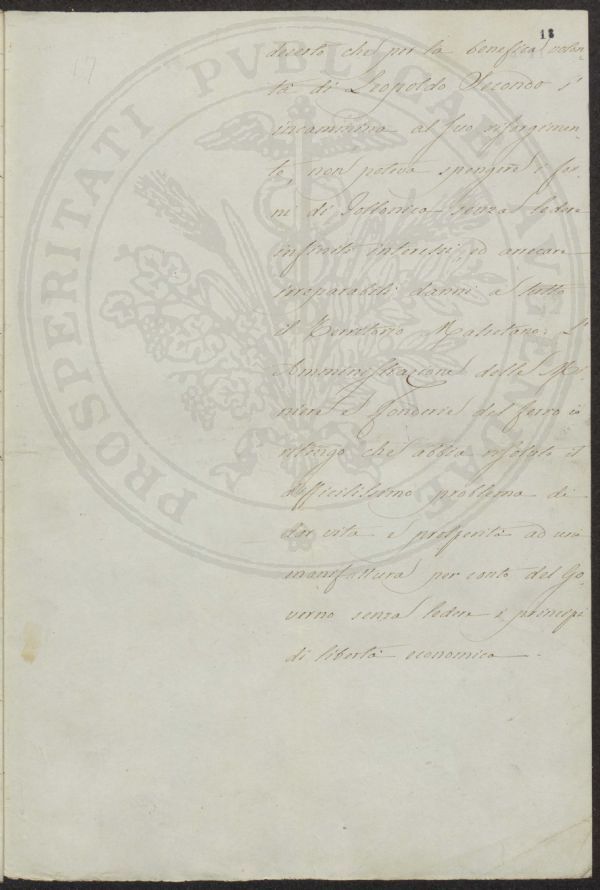 18
17
deserto che per la benefica volon-
tà di Leopoldo Secondo s'
incammina al suo risorgimen-
to, non poteva spengere i for-
ni di Follonica senza ledere
infiniti interessi, ed arrecare
irreparabili danni a tutto
il Territorio Massetano. L'
Amministrazione delle Mi-
niere e Fonderie del ferro io
ritengo che abbia risoluto il
difficilissimo problema di
dar vita e prosperità ad una
manifattura per conto del Go-
verno senza ledere i principi
di libertà economica.
PROSPERITATI PVBLICAE AVGENDAE